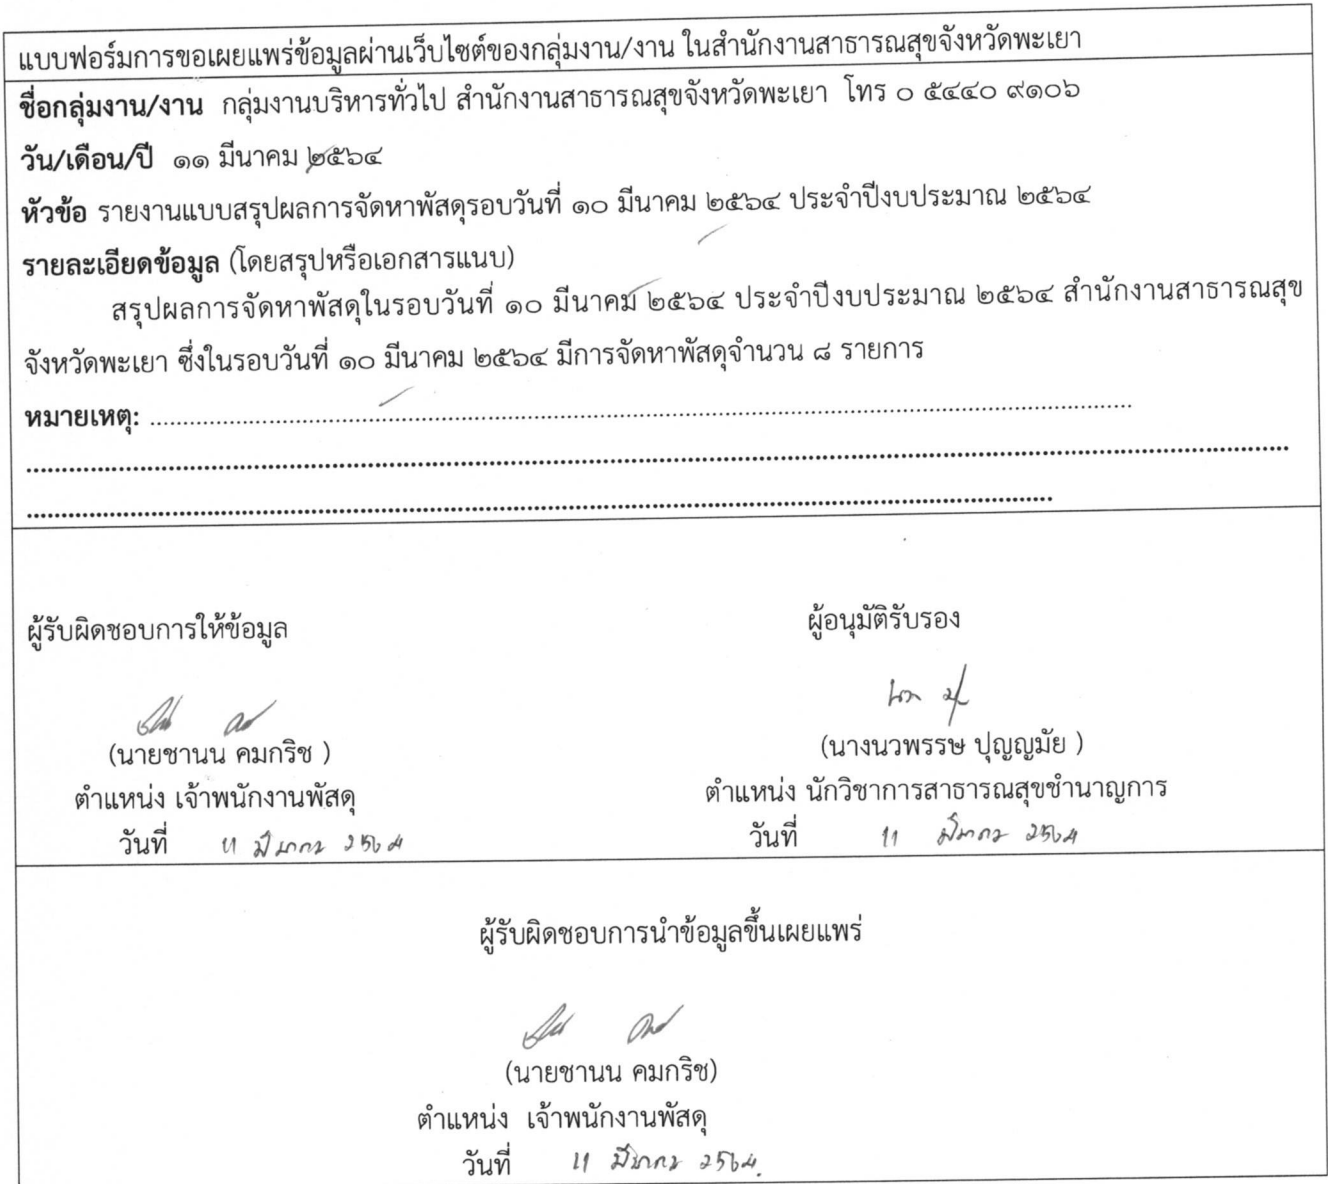 แบบฟอร์มการขอเผยแพร่ข้อมูลผ่านเว็บไซต์ของกลุ่มงาน/งาน ในสำนักงานสาธารณสุขจังหวัดพะเยา
ชื่อกลุ่มงาน/งาน กลุ่มงานบริหารทั่วไป สำนักงานสาธารณสุขจังหวัดพะเยา โทร ๐ ๕๔๔๐ ๙๑๐๖
วัน/เดือน/ปี ๑๑ มีนาคม ๒๕๖๔
หัวข้อ รายงานแบบสรุปผลการจัดหาพัสดุรอบวันที่ ๑๐ มีนาคม ๒๕๖๔ ประจำปีงบประมาณ ๒๕๖๔
รายละเอียดข้อมูล (โดยสรุปหรือเอกสารแนบ)
สรุปผลการจัดหาพัสดุในรอบวันที่ ๑๐ มีนาคม ๒๕๖๔ ประจำปีงบประมาณ ๒๕๖๔ สำนักงานสาธารณสุข
จังหวัดพะเยา ซึ่งในรอบวันที่ ๑๐ มีนาคม ๒๕๖๔ มีการจัดหาพัสดุจำนวน ๘ รายการ
หมายเหตุ:
ผู้รับผิดชอบการให้ข้อมูล
ผู้อนุมัติรับรอง
(นายชานน คมกริช )
(นางนวพรรษ ปุญญมัย )
ตำแหน่ง เจ้าพนักงานพัสดุ
ตำแหน่ง นักวิชาการสาธารณสุขชำนาญการ
วันที่ 11 มีนาคม 2564
วันที่ 11 มีนาคม 2564
ผู้รับผิดชอบการนำข้อมูลขึ้นเผยแพร่
(นายชานน คมกริช)
ตำแหน่ง เจ้าพนักงานพัสดุ
วันที่ 11 มีนาคม 2564.